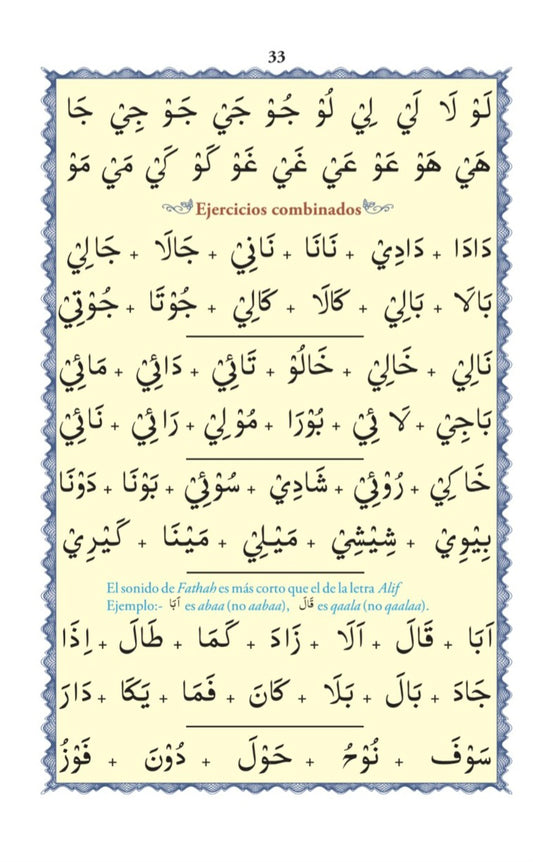 33
لَوْ لَا لَيْ لِيْ لُوْ جُوْ جَيْ جَوْ جِيْ جَا
هَيْ هَوْ عَوْ عَيْ غَيْ غَوْ كَوْ كَيْ مَيْ مَوْ
Ejercicios combinados
دَادَا + دَادِيْ + نَانَا + نَانِيْ + جَالَا + جَالِيْ
بَالَا + بَالِيْ + كَالَا + كَالِيْ + جُوْتَا + جُوْتِيْ
نَالِيْ + خَالِيْ + خَالُوْ + تَائِيْ + دَائِيْ + مَائِيْ
بَاجِيْ + لَا ئِيْ + بُوْرَا + مُوْلِيْ + رَائِيْ + نَائِيْ
خَاكِيْ + رُوْئِيْ + شَادِيْ + سُوْئِيْ + بَوْنَا + دَوْنَا
بِيْوِيْ + شِيْشِيْ + مَيْلِيْ + مَيْنَا + كَيْرِيْ
El sonido de Fathah es más corto que el de la letra Alif
Ejemplo:- اَبَا es abaa (no aabaa), قَالَ es qaala (no qaalaa).
اَبَا + قَالَ + اَلَا + زَادَ + كَمَا + طَالَ + اِذَا
جَادَ + بَالَ + بَلَا + كَانَ + فَمَا + يَكَا + دَارَ
سَوْفَ + نُوْحُ + حَوْلَ + دُوْنَ + فَوْزُ